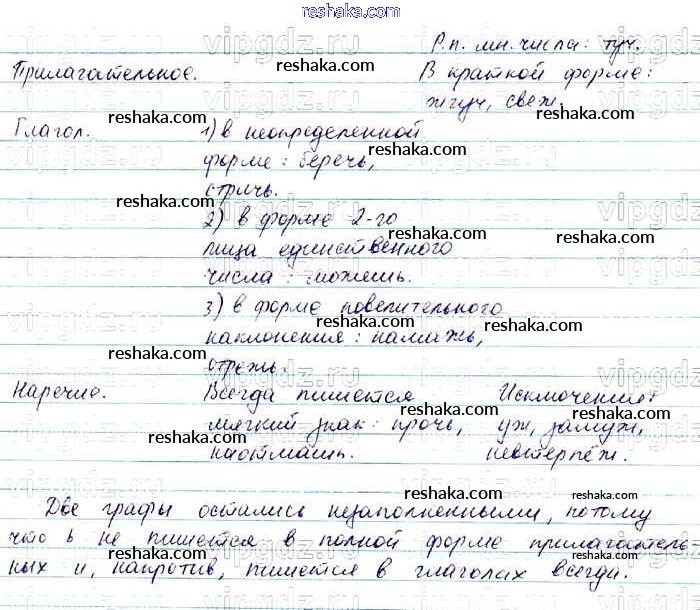 reshaka.com
Р.п. мн. числа: туч.
Прилагательное. В краткой форме:
жгуч, свеж.
Глагол. 1) в неопределенной
форме: беречь,
стричь.
2) в форме 2-го
лица единственного
числа: можешь.
3) в форме повелительного
наклонения: намажь,
отрежь.
Наречие. Всегда пишется Исключения:
мягкий знак: прочь, уж, замуж,
наотмашь. невтерпёж.
Две графы остались незаполненными, потому
что ь не пишется в полной форме прилагатель-
ных и, напротив, пишется в глаголах всегда.